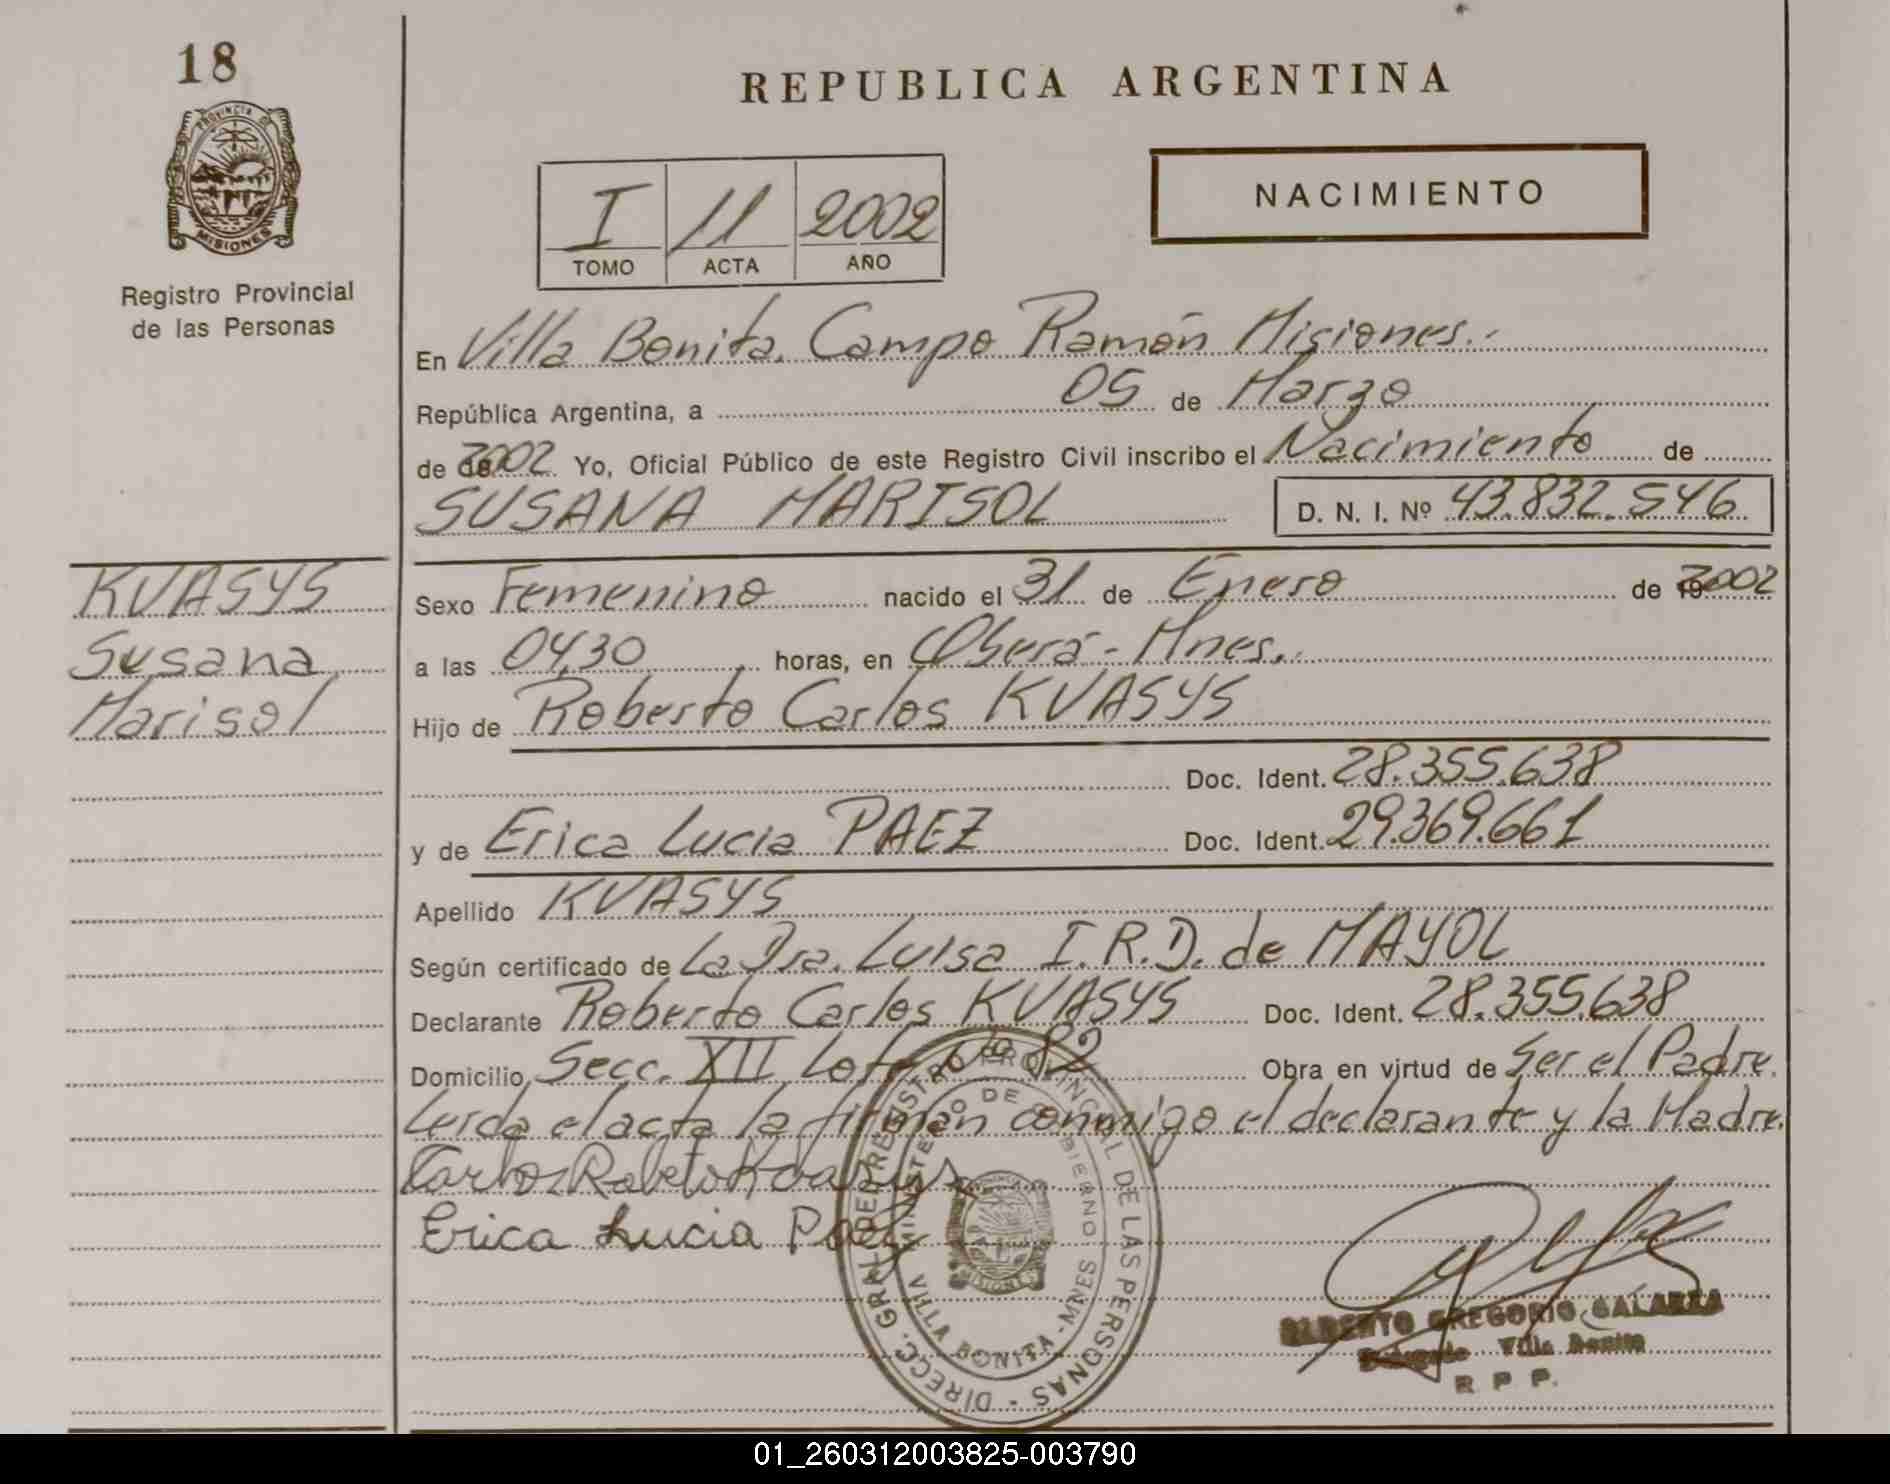 18
PROVINCIA DE
MISIONES
Registro Provincial
de las Personas
REPUBLICA ARGENTINA
I 11 2002
TOMO ACTA AÑO
NACIMIENTO
En Villa Bonita. Campo Ramón Misiones.
República Argentina, a 05 de Marzo
de 2002 Yo, Oficial Público de este Registro Civil inscribo el Nacimiento de
SUSANA MARISOL D. N. I. Nº 43.832.546
KVASYS
Susana
Marisol
Sexo Femenino nacido el 31 de Enero de 2002
a las 04,30 horas, en Oberá - Mnes.
Hijo de Roberto Carlos KVASYS
Doc. Ident. 28.355.638
y de Erica Lucia PAEZ Doc. Ident. 29.369.661
Apellido KVASYS
Según certificado de La Dra. Luisa I. R. D. de MAYOL
Declarante Roberto Carlos KVASYS Doc. Ident. 28.355.638
Domicilio Secc. XII Lote Nº 82 Obra en virtud de Ser el Padre.
Leida el acta la firman conmigo el declarante y la Madre.
Carlos Roberto Kvasys
Erica Lucia Paez
DIRECC. GRAL. DEL REGISTRO PROVINCIAL DE LAS PERSONAS
MINISTERIO DE GOBIERNO
MISIONES
VILLA BONITA - MNES
ALBERTO GREGORIO GALARZA
Delegado Villa Bonita
R. P. P.
01_260312003825-003790